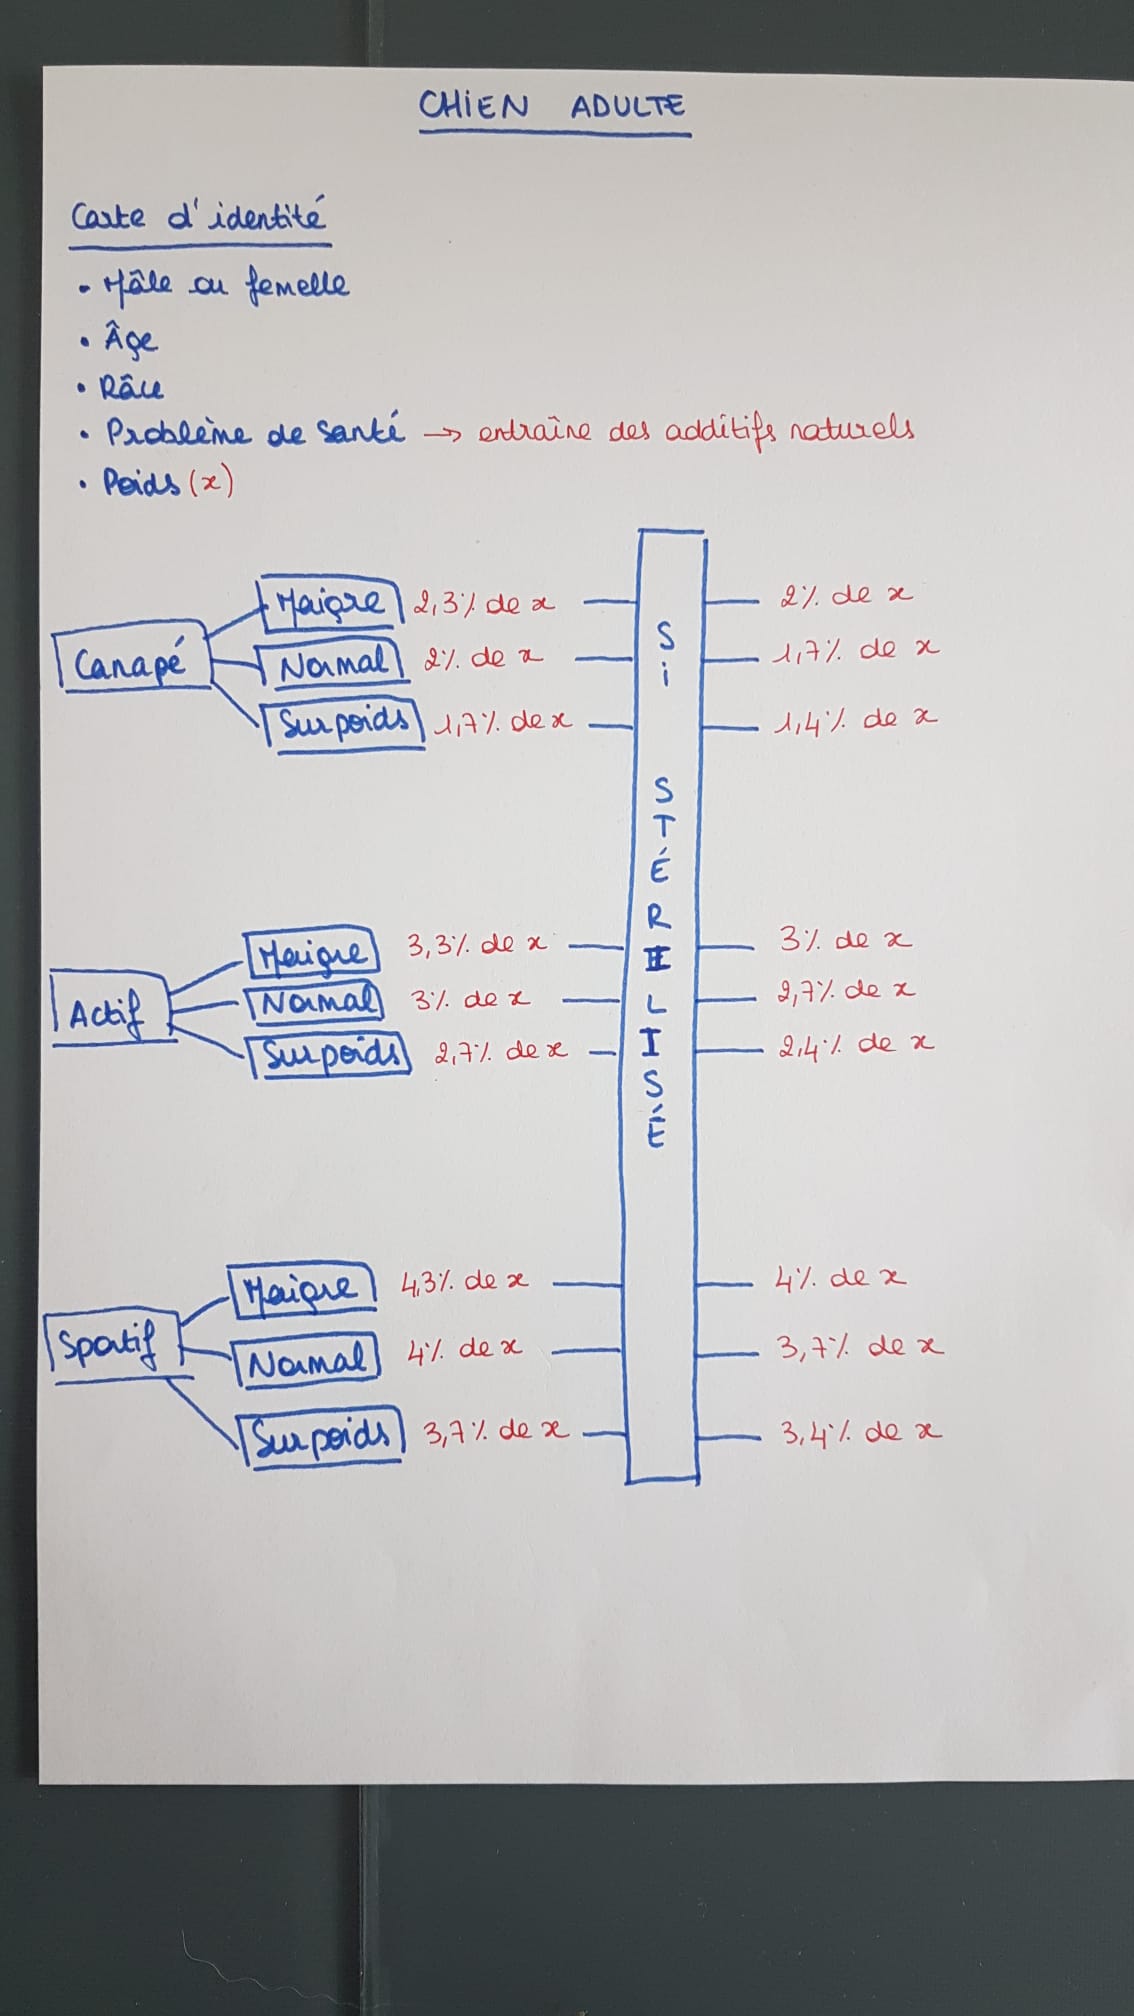 CHIEN ADULTE
Carte d'identité
• Mâle ou femelle
• Âge
• Râce
• Problème de santé → entraîne des additifs naturels
• Poids (x)
Canapé
Maigre 2,3% de x 2% de x
Normal 2% de x 1,7% de x
Surpoids 1,7% de x 1,4% de x
SI STÉRILISÉ
Actif
Maigre 3,3% de x 3% de x
Normal 3% de x 2,7% de x
Surpoids 2,7% de x 2,4% de x
Sportif
Maigre 4,3% de x 4% de x
Normal 4% de x 3,7% de x
Surpoids 3,7% de x 3,4% de x